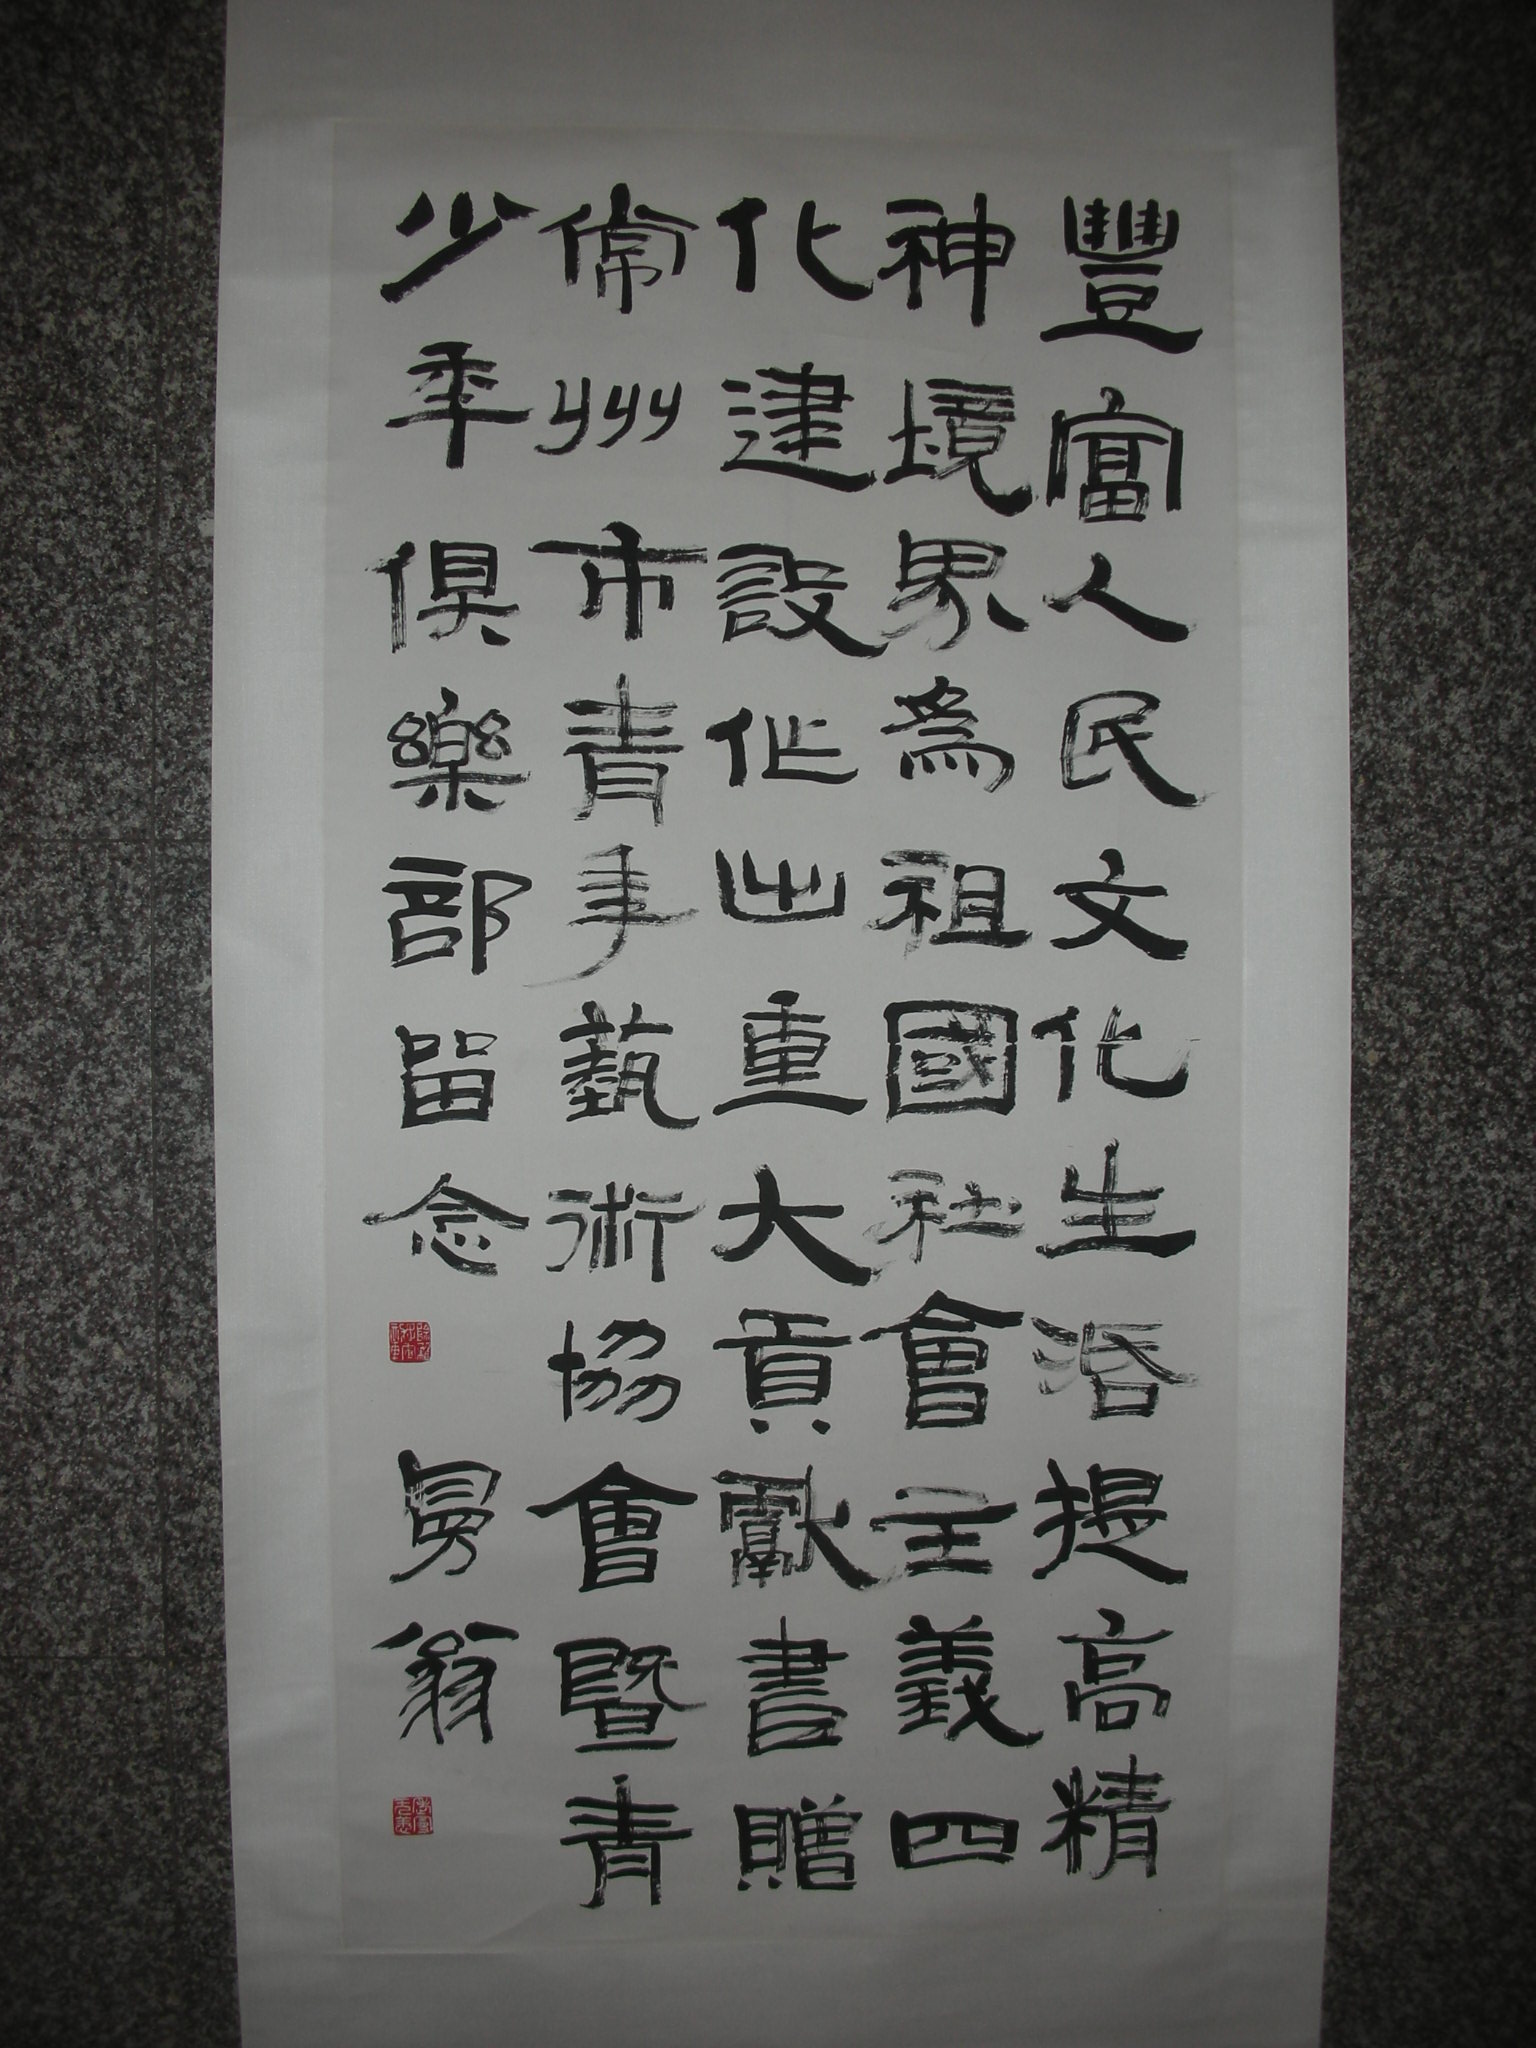 豐富人民文化生活提高精
神境界為祖國社會主義四
化建設作出重大貢獻書贈
常州市青年藝術協會暨青
少年俱樂部留念
曼翁